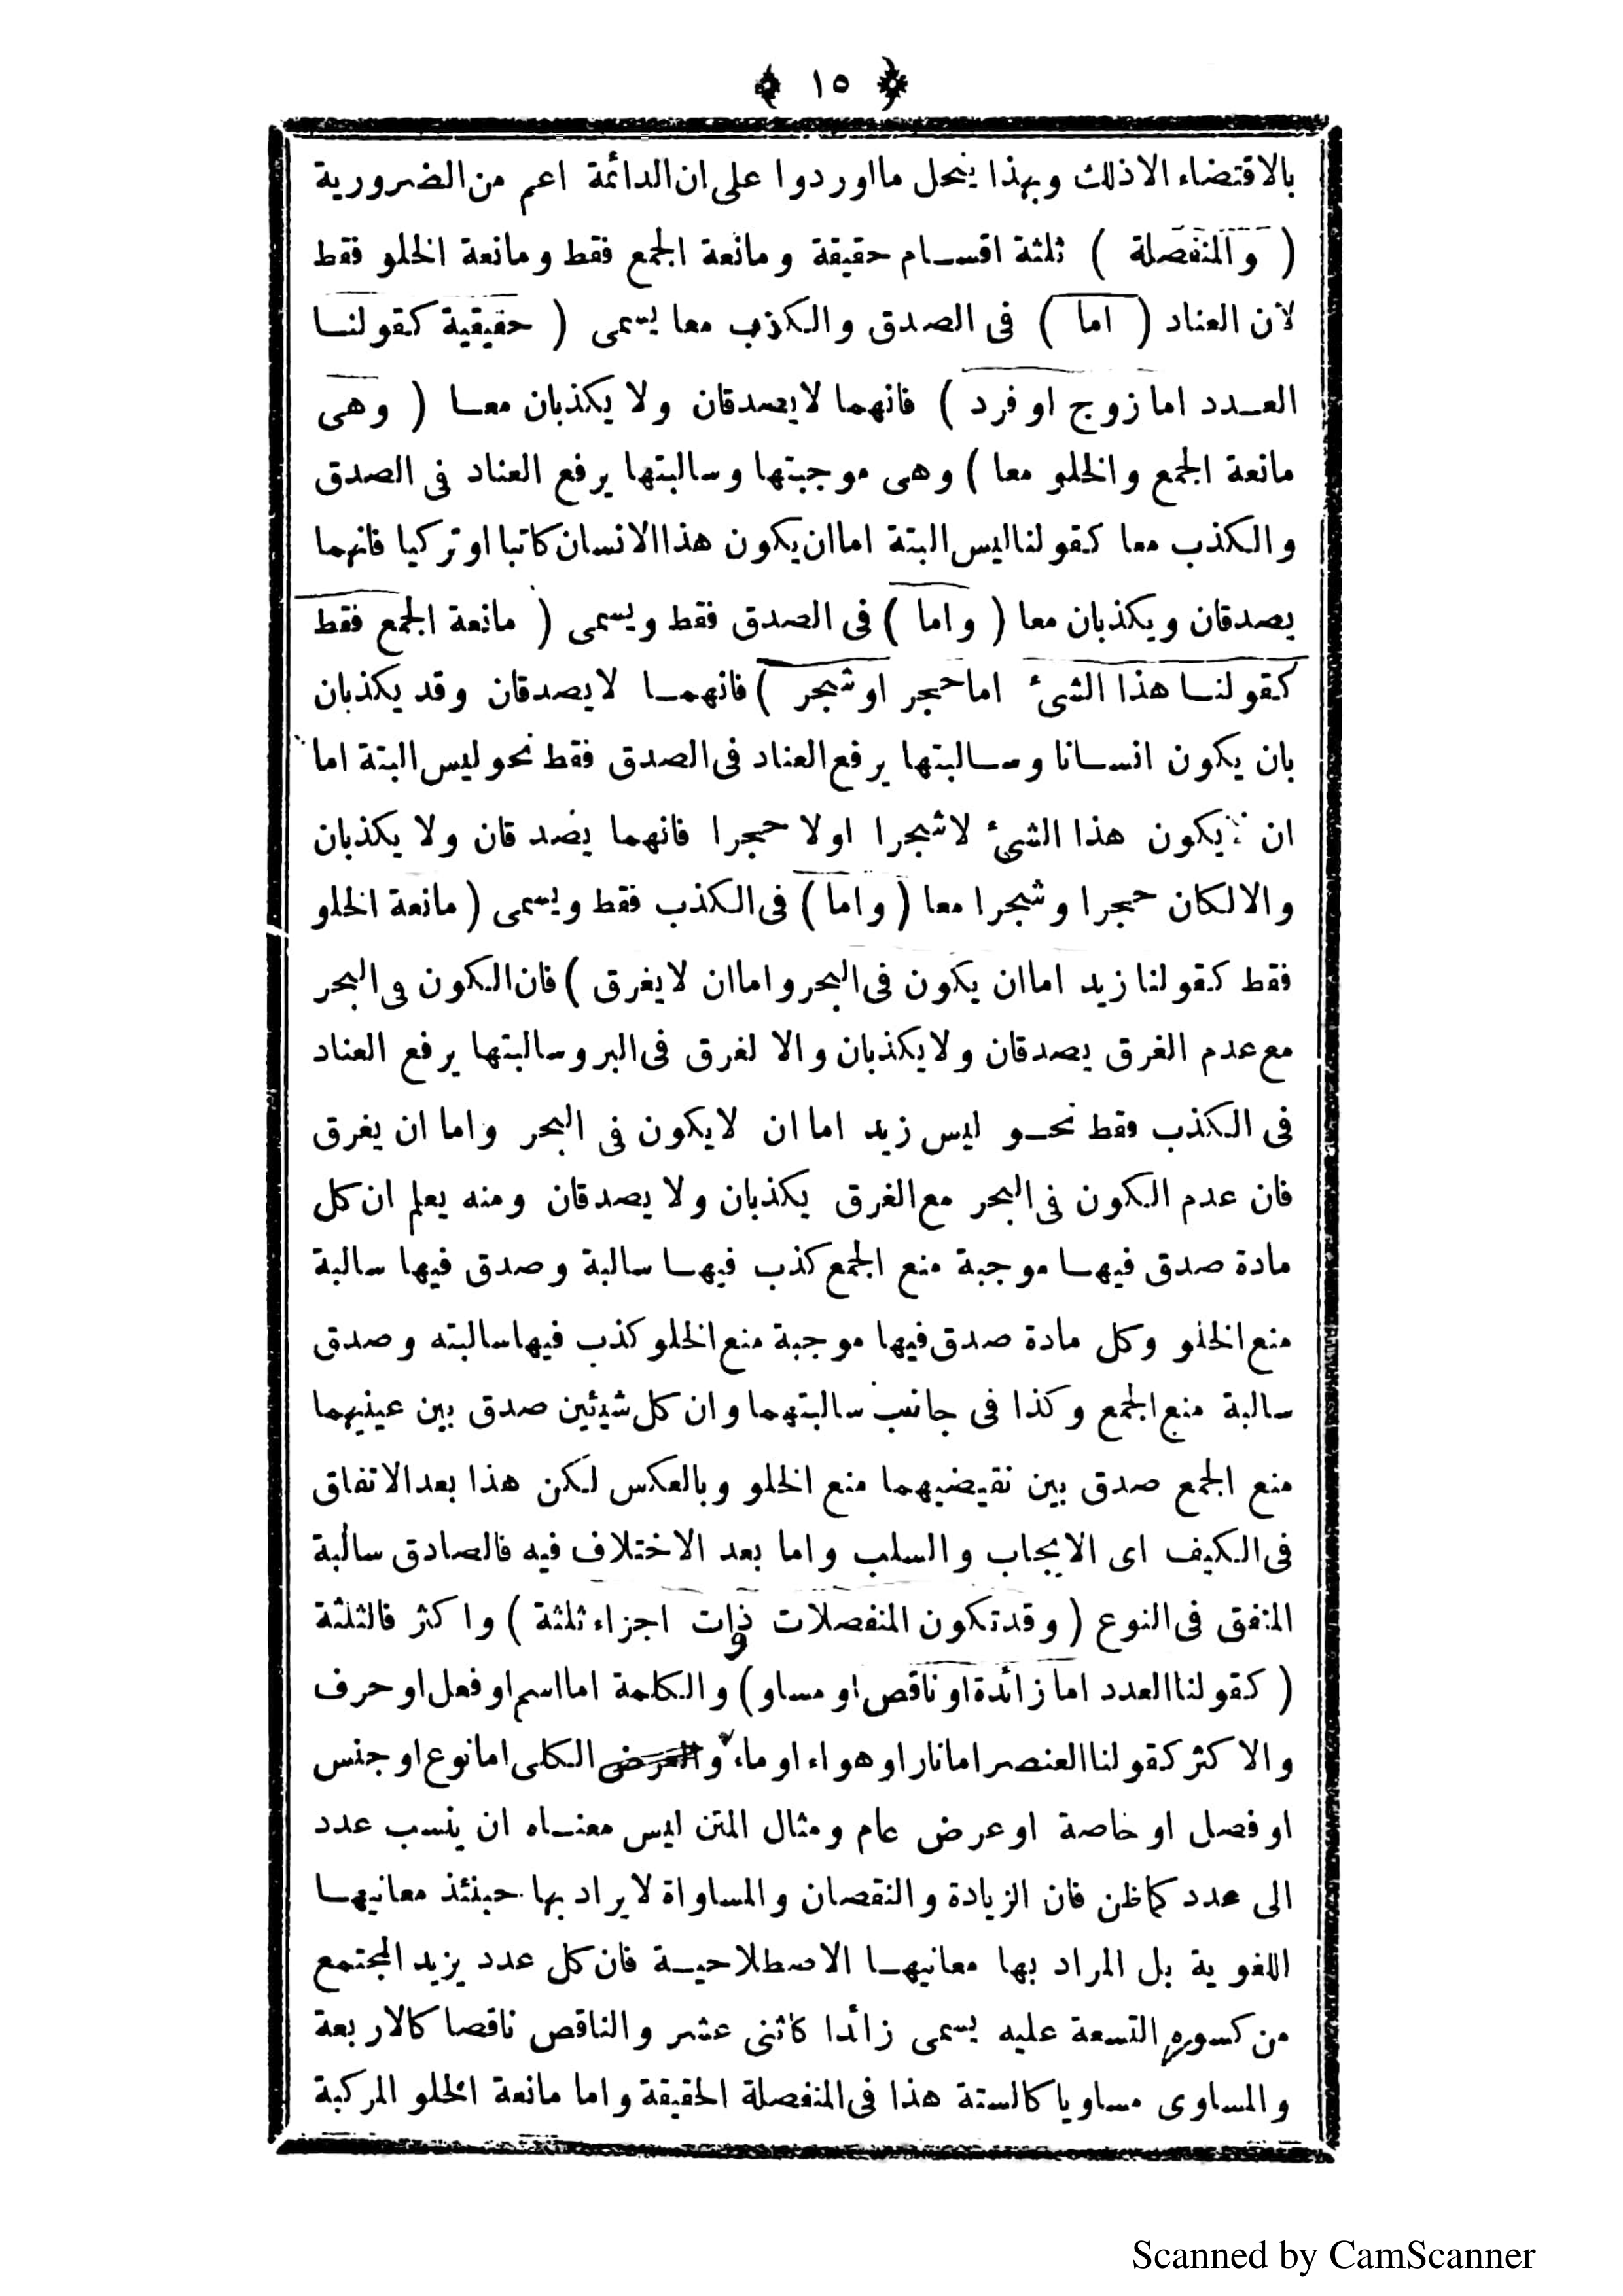 ﴿ ١٥ ﴾
بالاقتضاء الاذلك وبهذا ينحل مااوردوا على ان الدائمة اعم من الضرورية
( والمنفصلة ) ثلثة اقسام حقيقة ومانعة الجمع فقط ومانعة الخلو فقط
لان العناد ( اما ) فى الصدق والكذب معا يسمى ( حقيقية كقولنا
العدد اما زوج او فرد ) فانهما لايصدقان ولا يكذبان معا ( وهى
مانعة الجمع والخلو معا ) وهى موجبتها وسالبتها يرفع العناد فى الصدق
والكذب معا كقولنا ليس البتة اما ان يكون هذا الانسان كاتبا او تركيا فانهما
يصدقان ويكذبان معا ( واما ) فى الصدق فقط ويسمى ( مانعة الجمع فقط
كقولنا هذا الشئ اما حجر او شجر ) فانهما لايصدقان وقد يكذبان
بان يكون انسانا وسالبتها يرفع العناد فى الصدق فقط نحو ليس البتة اما
ان يكون هذا الشئ لاشجرا او لا حجرا فانهما يصدقان ولا يكذبان
والالكان حجرا وشجرا معا ( واما ) فى الكذب فقط ويسمى ( مانعة الخلو
فقط كقولنا زيد اما ان يكون فى البحر واما ان لايغرق ) فان الكون فى البحر
مع عدم الغرق يصدقان ولايكذبان والا لغرق فى البر وسالبتها يرفع العناد
فى الكذب فقط نحو ليس زيد اما ان لايكون فى البحر واما ان يغرق
فان عدم الكون فى البحر مع الغرق يكذبان ولا يصدقان ومنه يعلم ان كل
مادة صدق فيها موجبة منع الجمع كذب فيها سالبة وصدق فيها سالبة
منع الخلو وكل مادة صدق فيها موجبة منع الخلو كذب فيها سالبته وصدق
سالبة منع الجمع وكذا فى جانب سالبتهما وان كل شيئين صدق بين عينيهما
منع الجمع صدق بين نقيضيهما منع الخلو وبالعكس لكن هذا بعد الاتفاق
فى الكيف اى الايجاب والسلب واما بعد الاختلاف فيه فالصادق سالبة
المتفق فى النوع ( وقد تكون المنفصلات ذوات اجزاء ثلثة ) واكثر فالثلثة
( كقولنا العدد اما زائدة او ناقص او مساو ) والكلمة اما اسم او فعل او حرف
والاكثر كقولنا العنصر اما نار او هواء او ماء و العرض الكلى اما نوع او جنس
او فصل او خاصة او عرض عام ومثال المتن ليس معناه ان ينسب عدد
الى عدد كماظن فان الزيادة والنقصان والمساواة لايراد بها حينئذ معانيها
اللغوية بل المراد بها معانيها الاصطلاحية فان كل عدد يزيد المجتمع
من كسوره التسعة عليه يسمى زائدا كاثنى عشر والناقص ناقصا كالاربعة
والمساوى مساويا كالستة هذا فى المنفصلة الحقيقة واما مانعة الخلو المركبة
Scanned by CamScanner